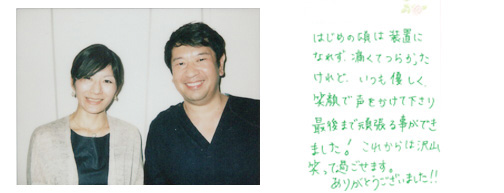 はじめの頃は装置に
なれず、痛くてつらかった
けれど、いつも優しく、
笑顔で声をかけて下さり
最後まで頑張る事ができ
ました! これからは沢山
笑って過ごせます。
ありがとうございました!!